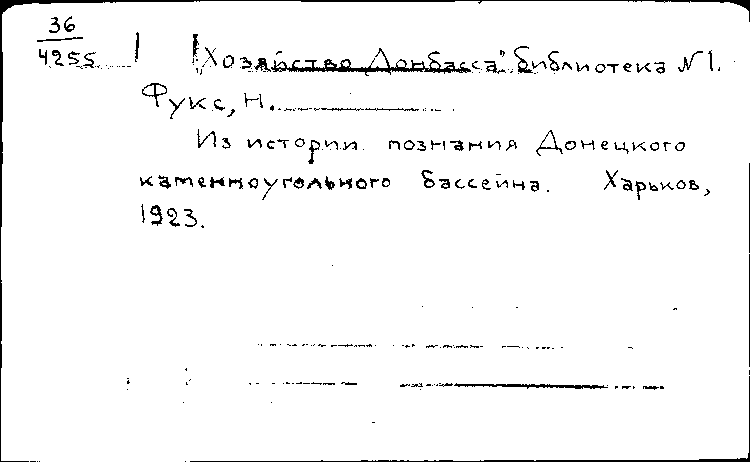 36
4255
"Хозяйство Донбасса" библиотека N 1.
Фукс, Н.
Из истории познания Донецкого
каменноугольного бассейна. Харьков,
1923.